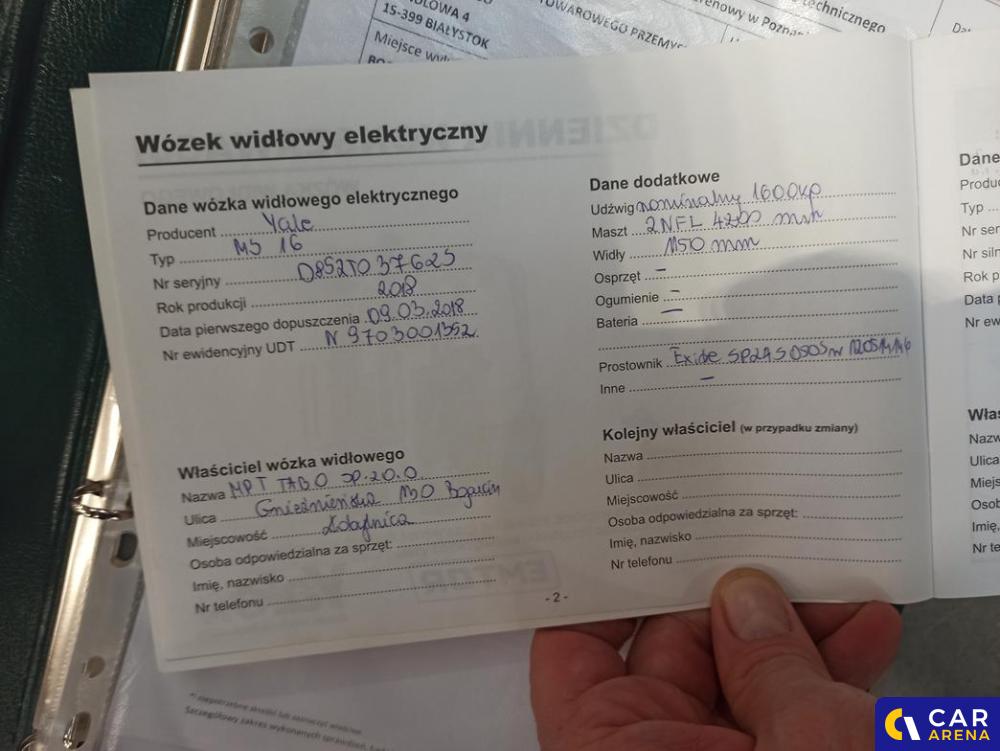 DLOWA 4
15-399 BIAŁYSTOK
TOWAROWEGO PRZEMYS
technicznego
Miejsce
Wózek widłowy elektryczny
Dane wózka widłowego elektrycznego
Producent Yale
Typ MS 16
Nr seryjny D852T037625
Rok produkcji 2018
Data pierwszego dopuszczenia 09.03.2018
Nr ewidencyjny UDT N 9703001352
Właściciel wózka widłowego
Nazwa MPT TABO SP.ZO.O
Ulica Gnieźnieńska 130 Bogucin
Miejscowość Kobylnica
Osoba odpowiedzialna za sprzęt:
Imię, nazwisko
Nr telefonu
Dane dodatkowe
Udźwig nominalny 1600kp
Maszt 2NFL 4200 mm
Widły 1150 mm
Osprzęt –
Ogumienie –
Bateria –
Prostownik Exide nr
Inne –
Kolejny właściciel (w przypadku zmiany)
Nazwa
Ulica
Miejscowość
Osoba odpowiedzialna za sprzęt:
Imię, nazwisko
Nr telefonu
- 2 -
Dane
Produc
Typ
Nr ser
Nr siln
Rok p
Data p
Nr ew
Właś
Nazw
Ulica
Miejs
Osob
Imię,
Nr te
*) niepotrzebne skreślić lub zaznaczyć właściwe
Szczegółowy zakres wykonanych sprawdzeń,
CAR
ARENA